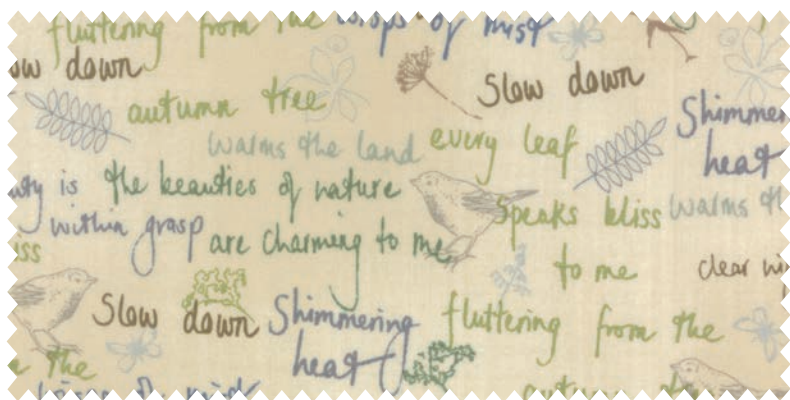 fluttering from the tree drops of mist
ow down
Slow down
autumn tree
Shimmer
warms the land
every leaf
heat
uty is
the beauties of nature
speaks bliss
warms th
within grasp
are charming to me
iss
to me
clear wi
Slow down
Shimmering
heat
fluttering from the
the